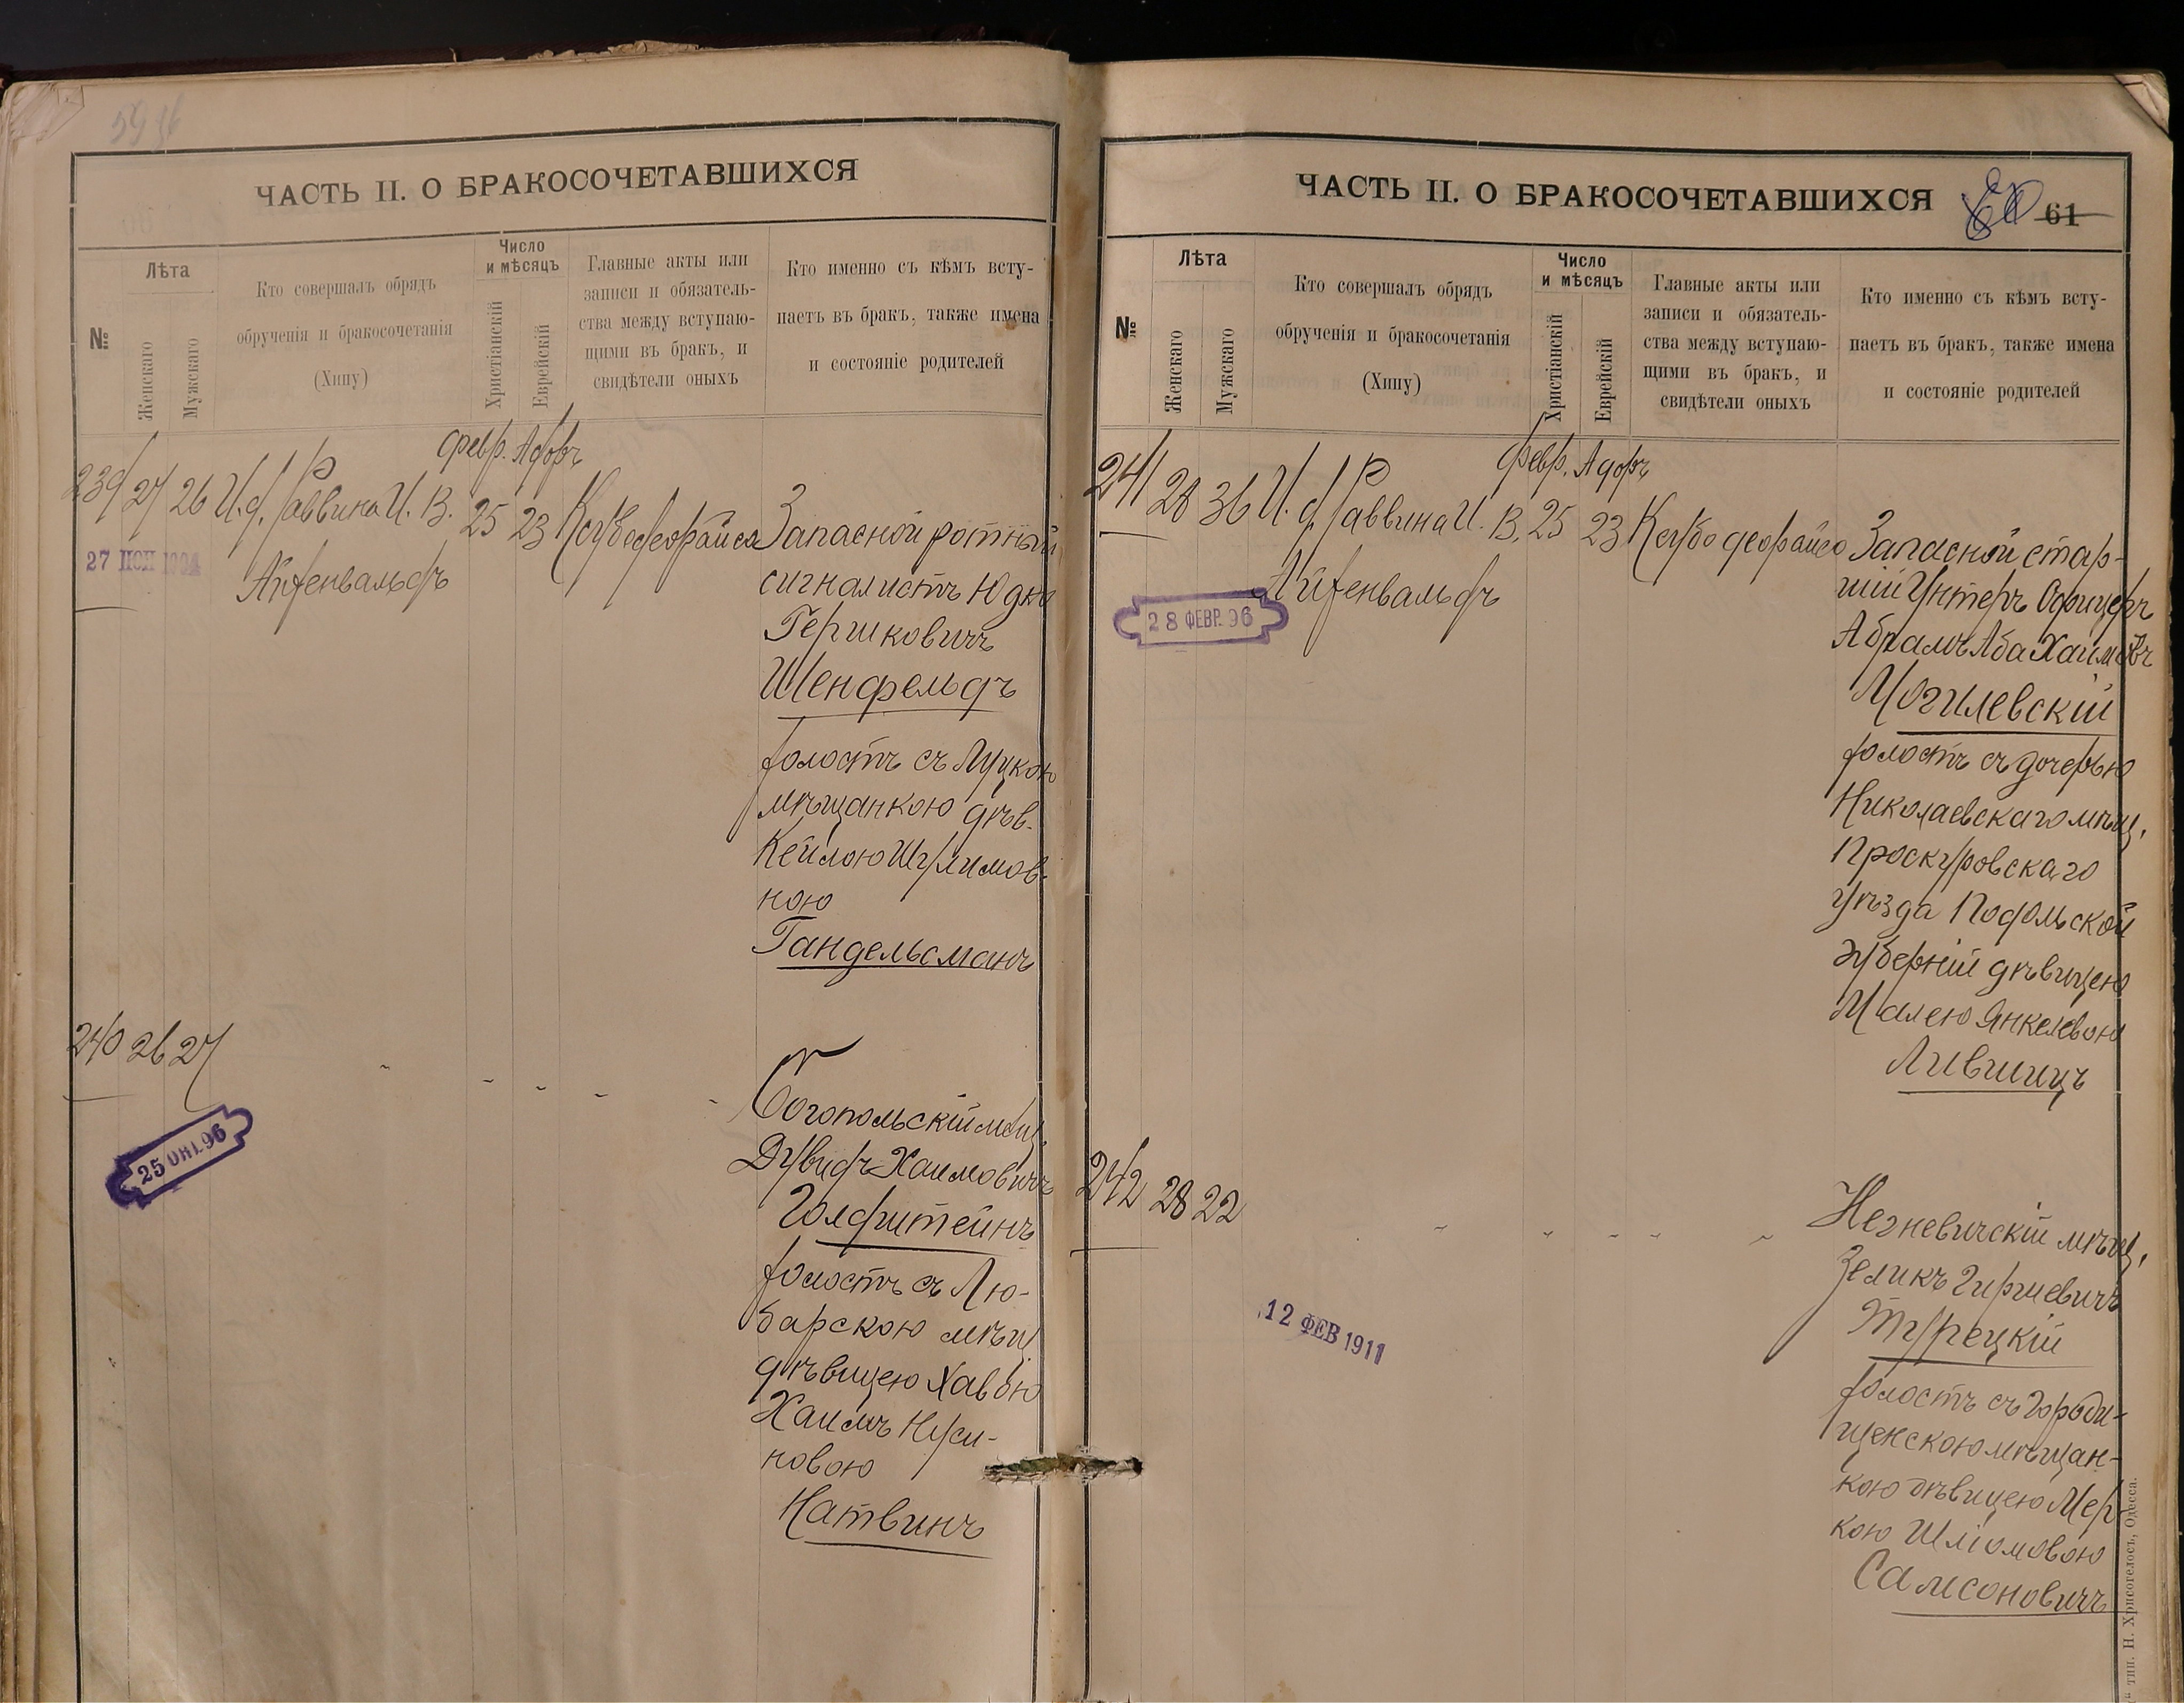 ЧАСТЬ II. О БРАКОСОЧЕТАВШИХСЯ
№
Лѣта
Женскаго
Мужскаго
Кто совершалъ обрядъ
обрученія и бракосочетанія
(Хипу)
Число
и мѣсяцъ
Христіанскій
Еврейскій
Главные акты или
записи и обязатель-
ства между вступаю-
щими въ бракъ, и
свидѣтели оныхъ
Кто именно съ кѣмъ всту-
паетъ въ бракъ, также имена
и состояніе родителей
февр. Адоръ
239 27 26 И. д. Раввина И. В. 25 23
Айхенвальдъ
Запасной ротный
сигналистъ Юдко
Гершковичъ
Шенфельдъ
холостъ съ Луцкою
мѣщанкою дѣв.
Кейлою Шулимов-
ною
Гандельсманъ
240 26 27
25 ОКТ. 96
Богопольскій мѣщ.
Дувидъ Хаимовичъ
Голдштейнъ
холостъ съ Лю-
барскою мѣщ
дѣвицею Хавою
Хаимъ Нуси-
новою
Натвинъ
ЧАСТЬ II. О БРАКОСОЧЕТАВШИХСЯ
61
№
Лѣта
Женскаго
Мужскаго
Кто совершалъ обрядъ
обрученія и бракосочетанія
(Хипу)
Число
и мѣсяцъ
Христіанскій
Еврейскій
Главные акты или
записи и обязатель-
ства между вступаю-
щими въ бракъ, и
свидѣтели оныхъ
Кто именно съ кѣмъ всту-
паетъ въ бракъ, также имена
и состояніе родителей
февр. Адоръ
241 28 36 И. д. Раввина И. В. 25 23
Айхенвальдъ
28 ФЕВР. 96
Запасной стар-
шій Унтеръ Офицеръ
Абрамъ Аба Хаимовъ
Могилевскій
холостъ съ дочерью
Николаевскаго мѣщ.
Проскуровскаго
уѣзда Подольской
губерніи дѣвицею
Малею Янкелевою
Лившицъ
242 28 22
12 ФЕВ 1911
Негневичскій мѣщ.
Зеликъ Гиршевичъ
Турецкій
холостъ съ Городи-
щенскою мѣщан-
кою дѣвицею Мер-
кою Шліомовою
Самсоновичъ
тип. Н. Хрисогелосъ, Одесса.